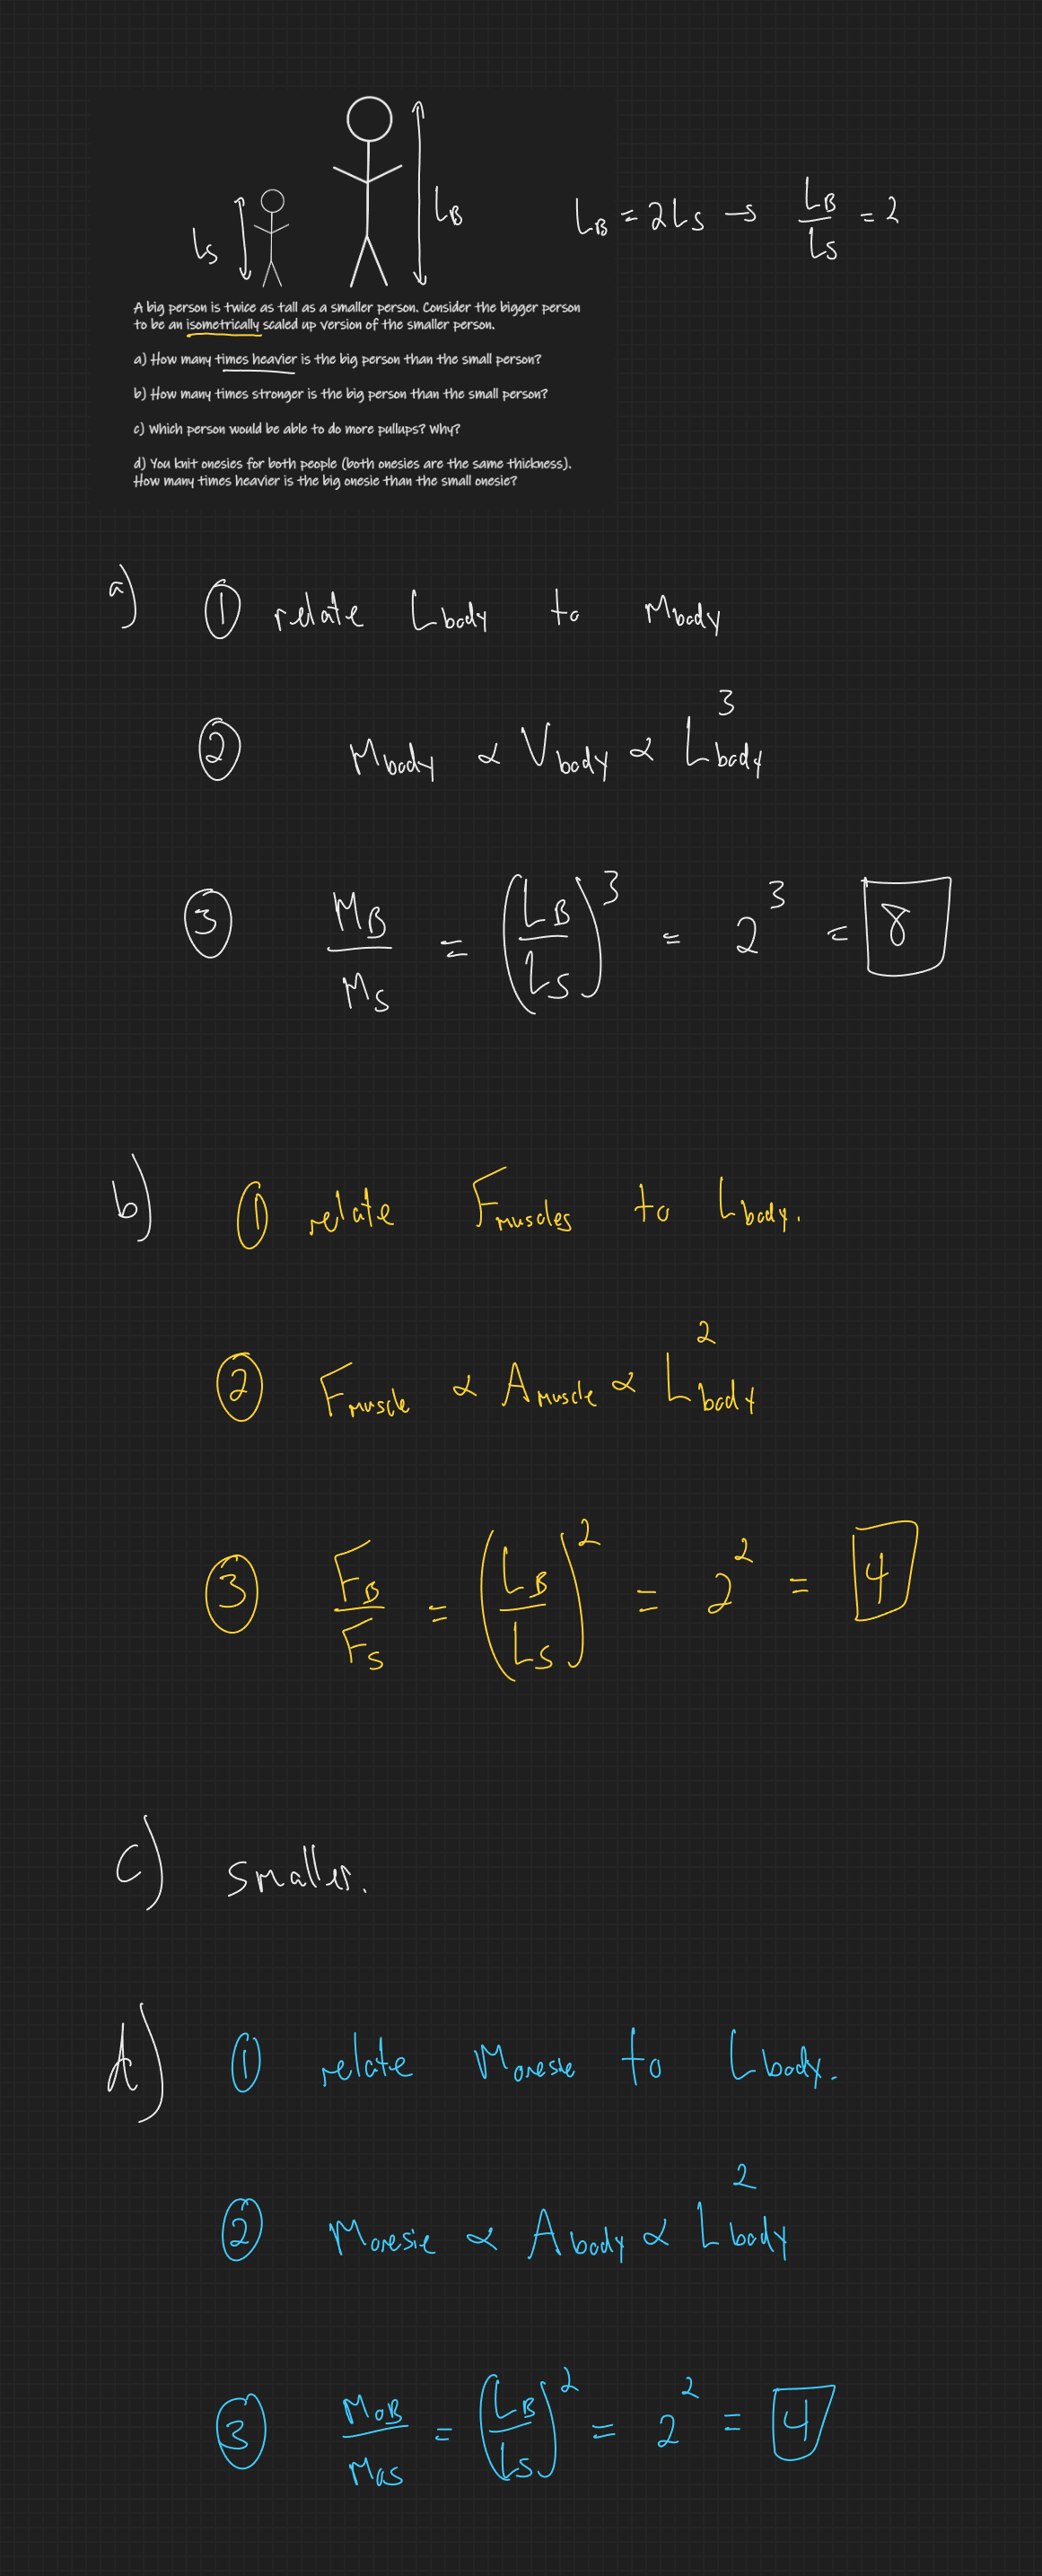 L_B
L_S
L_B = 2L_S → L_B/L_S = 2
A big person is twice as tall as a smaller person. Consider the bigger person
to be an isometrically scaled up version of the smaller person.
a) How many times heavier is the big person than the small person?
b) How many times stronger is the big person than the small person?
c) Which person would be able to do more pullups? Why?
d) You knit onesies for both people (both onesies are the same thickness).
How many times heavier is the big onesie than the small onesie?
a) ① relate L_body to M_body
② M_body ∝ V_body ∝ L_body^3
③ M_B/M_S = (L_B/L_S)^3 = 2^3 = 8
b) ① relate F_muscles to L_body.
② F_muscle ∝ A_muscle ∝ L_body^2
③ F_B/F_S = (L_B/L_S)^2 = 2^2 = 4
c) smaller.
d) ① relate M_onesie to L_body.
② M_onesie ∝ A_body ∝ L_body^2
③ M_OB/M_OS = (L_B/L_S)^2 = 2^2 = 4